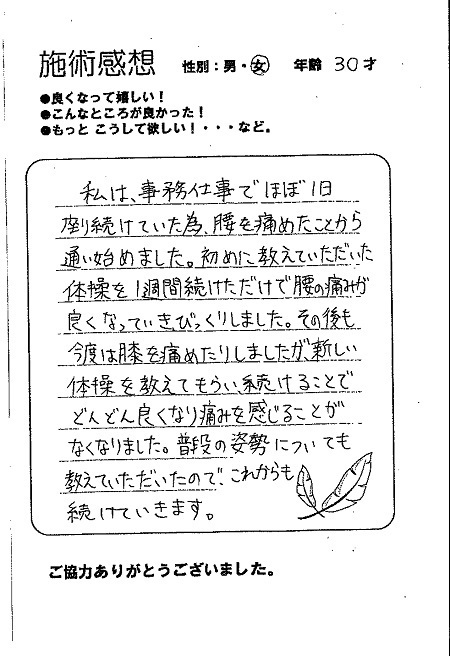 施術感想 性別：男・女 年齢 30才
●良くなって嬉しい！
●こんなところが良かった！
●もっと こうして欲しい！・・・など。
私は、事務仕事でほぼ1日
座り続けていた為、腰を痛めたことから
通い始めました。初めに教えていただいた
体操を1週間続けただけで腰の痛みが
良くなっていきびっくりしました。その後も
今度は膝を痛めたりしましたが、新しい
体操を教えてもらい、続けることで
どんどん良くなり痛みを感じることが
なくなりました。普段の姿勢についても
教えていただいたので、これからも
続けていきます。
ご協力ありがとうございました。